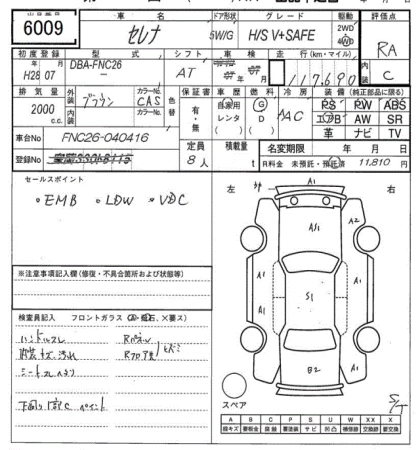 出品番号 車名 ドア形状 グレード 駆動 評価点
6009 セレナ 5W/G H/S V+SAFE 2WD 4WD RA
初度登録 型式 シフト 車検 走行(km・マイル) 内装
H28 年 07 月 DBA-FNC26 AT 年 月 117,690 C
排気量 外装 カラーNo. 色替 保証書 車歴 燃料 冷房 装備(純正部品に限る)
2000 c.c. ブラウン CAS 有・無 自家用 レンタ ( ) G D ( ) AAC PS PW ABS
内装 カラーNo. エアB AW SR
革 ナビ TV
車台No FNC26-040416 定員 積載量 名変期限 年 月 日
登録No 8人 t R料金 未預託・預託済 11,810円
セールスポイント
・EMB ・LDW ・VDC
左 外 A1 右
A2
AS1
A1 A1
S1
A1 A1
B2
※注意事項記入欄(修復・不具合箇所および状態等)
検査員記入 フロントガラス
ハンドルスレ Rパネル
内装キズ、汚れ Rフロア
下回り 
スペア
S/T
A B C P S U W X XX
線キズ 要板金 腐蝕 要塗装 サビ 凹凸 補修跡 交換跡 要交換